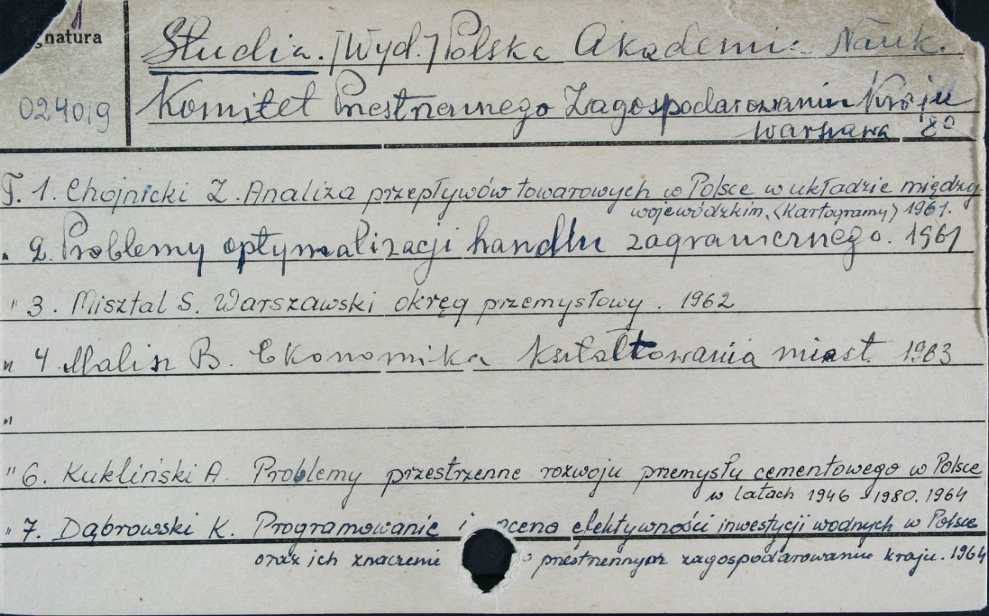 gnatura
Studia. [Wyd.] Polska Akademia Nauk.
024019
Komitet Przestrzennego Zagospodarowania Kraju
Warszawa 80
T. 1. Chojnicki Z. Analiza przepływów towarowych w Polsce w układzie między
wojewódzkim. (Kartogramy) 1961.
" 2. Problemy optymalizacji handlu zagranicznego. 1961
" 3. Misztal S. Warszawski okręg przemysłowy. 1962
" 4. Malisz B. Ekonomika kształtowania miast 1963
"
" 6. Kukliński A. Problemy przestrzenne rozwoju przemysłu cementowego w Polsce
w latach 1946 1980. 1964
" 7. Dąbrowski K. Programowanie i ocena efektywności inwestycji wodnych w Polsce
oraz ich znaczeni o przestrzennym zagospodarowaniu kraju. 1964